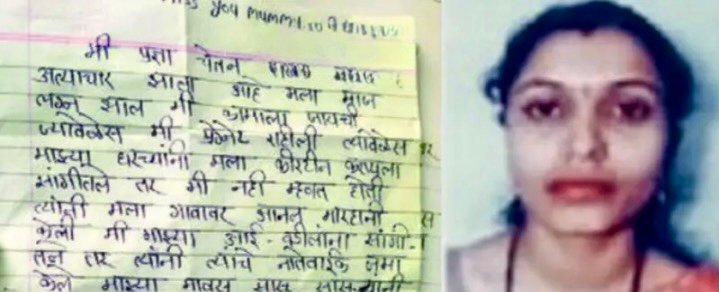 you mummy
मी प्रज्ञा चेतन
अत्याचार झाला आहे मला माज
लग्न झाल मी कामाला जायची
ज्यावेळेस मी प्रेग्नेंट राहीली त्यावेळेस घर
माझ्या घरच्यांनी मला
सांगीतले तर मी नही म्हनत होती
त्यांनी मला गावावर आनल मारहानी स
केली मी माझ्या आई-वडीलांना सांगी-
तले तर त्यांनी त्याचे नातेवाईक जमा
केले माझ्या मावस सासू